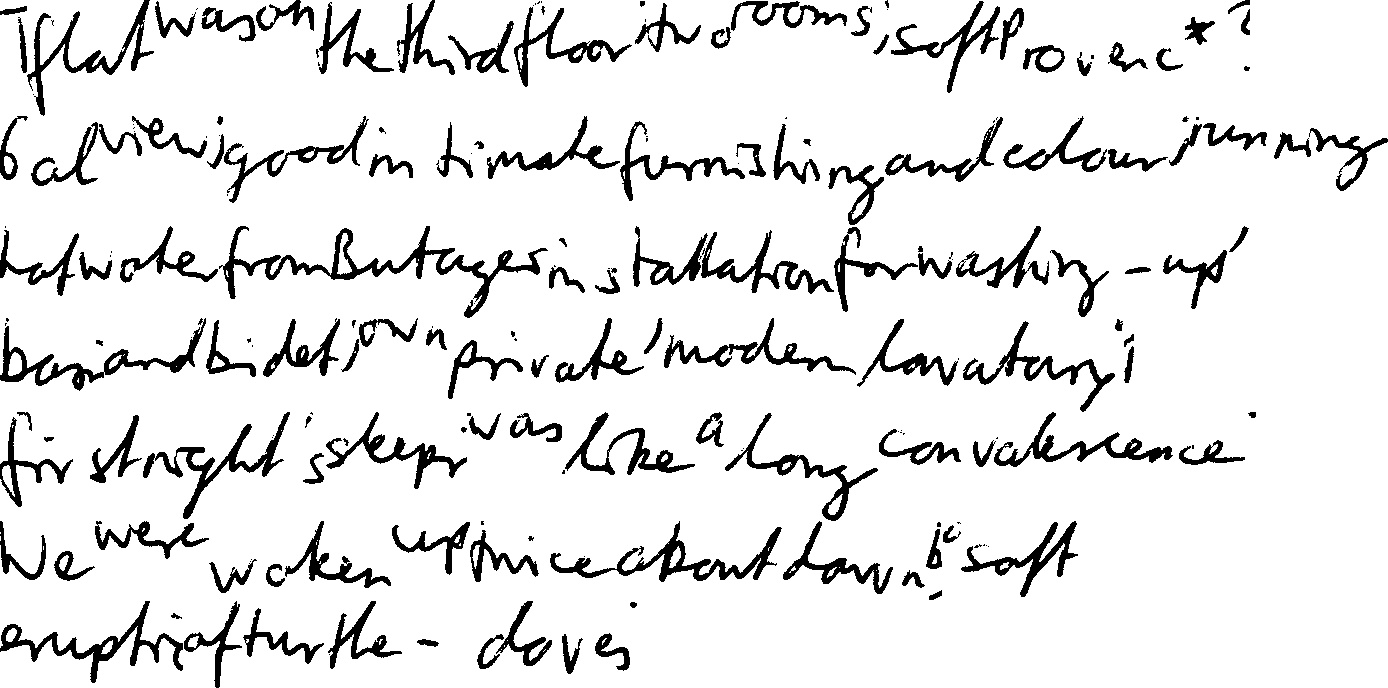 flat was on the third floor; two rooms; soft Provenc*?
al view; good intimate furnishing and colour; running
hot water from Butages installation for washing-up
and bidet; own private, modern lavatory;
first night's sleep was like a long convalescence.
We were woken up twice about dawn by soft
of turtle-doves